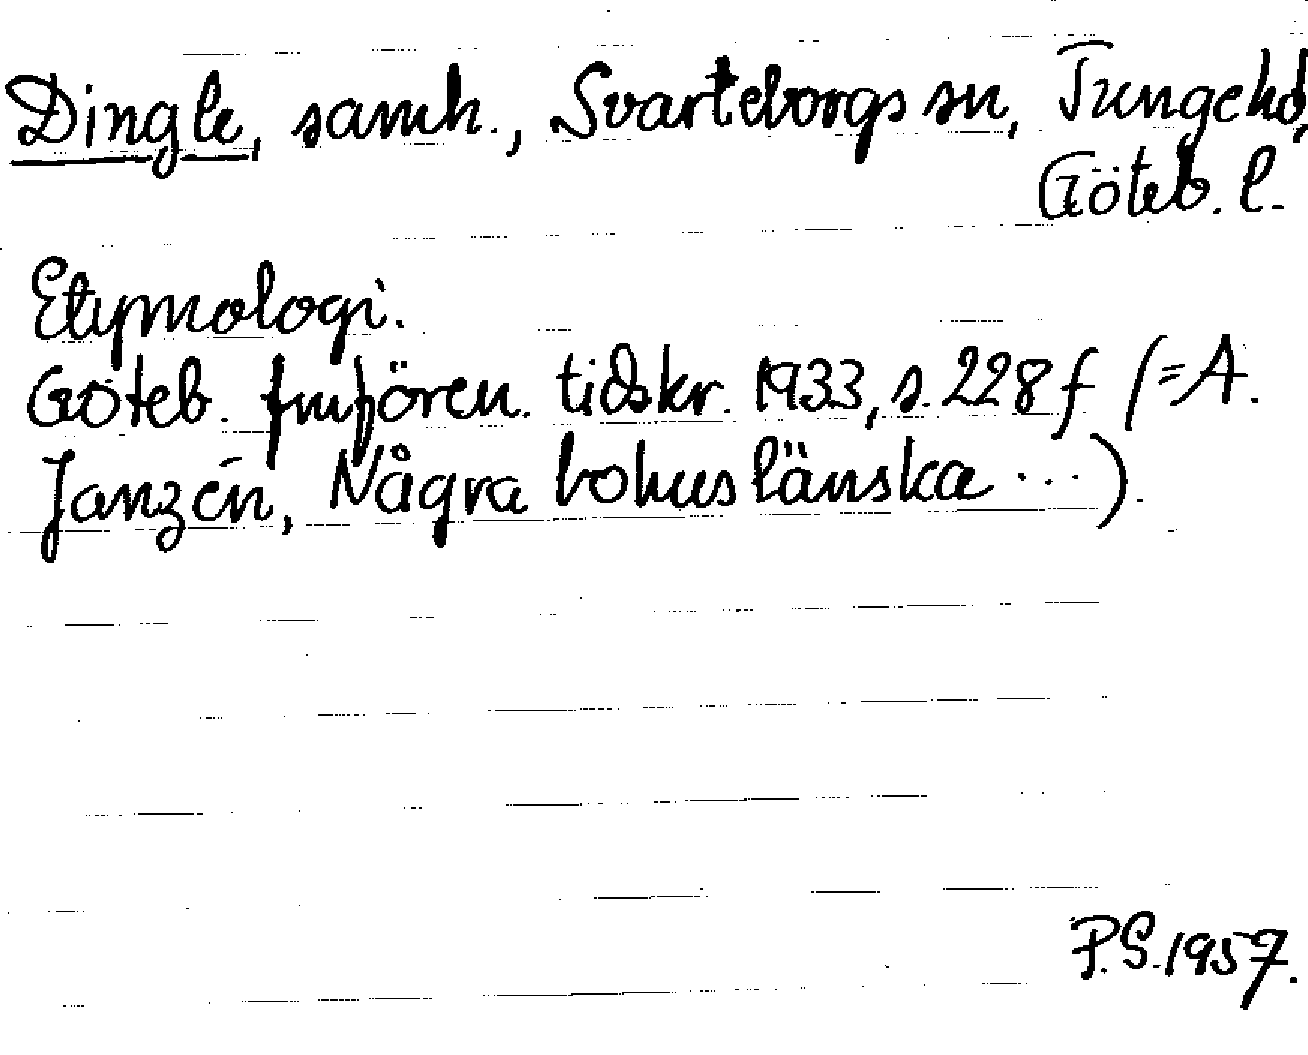 Dingle, samh., Svarteborgs sn, Tungehd,
Göteb. l.
Etymologi.
Göteb. fmfören. tidskr. 1933, s. 228 f (=A.
Janzén, Några bohuslänska ...).
P.S. 1957.